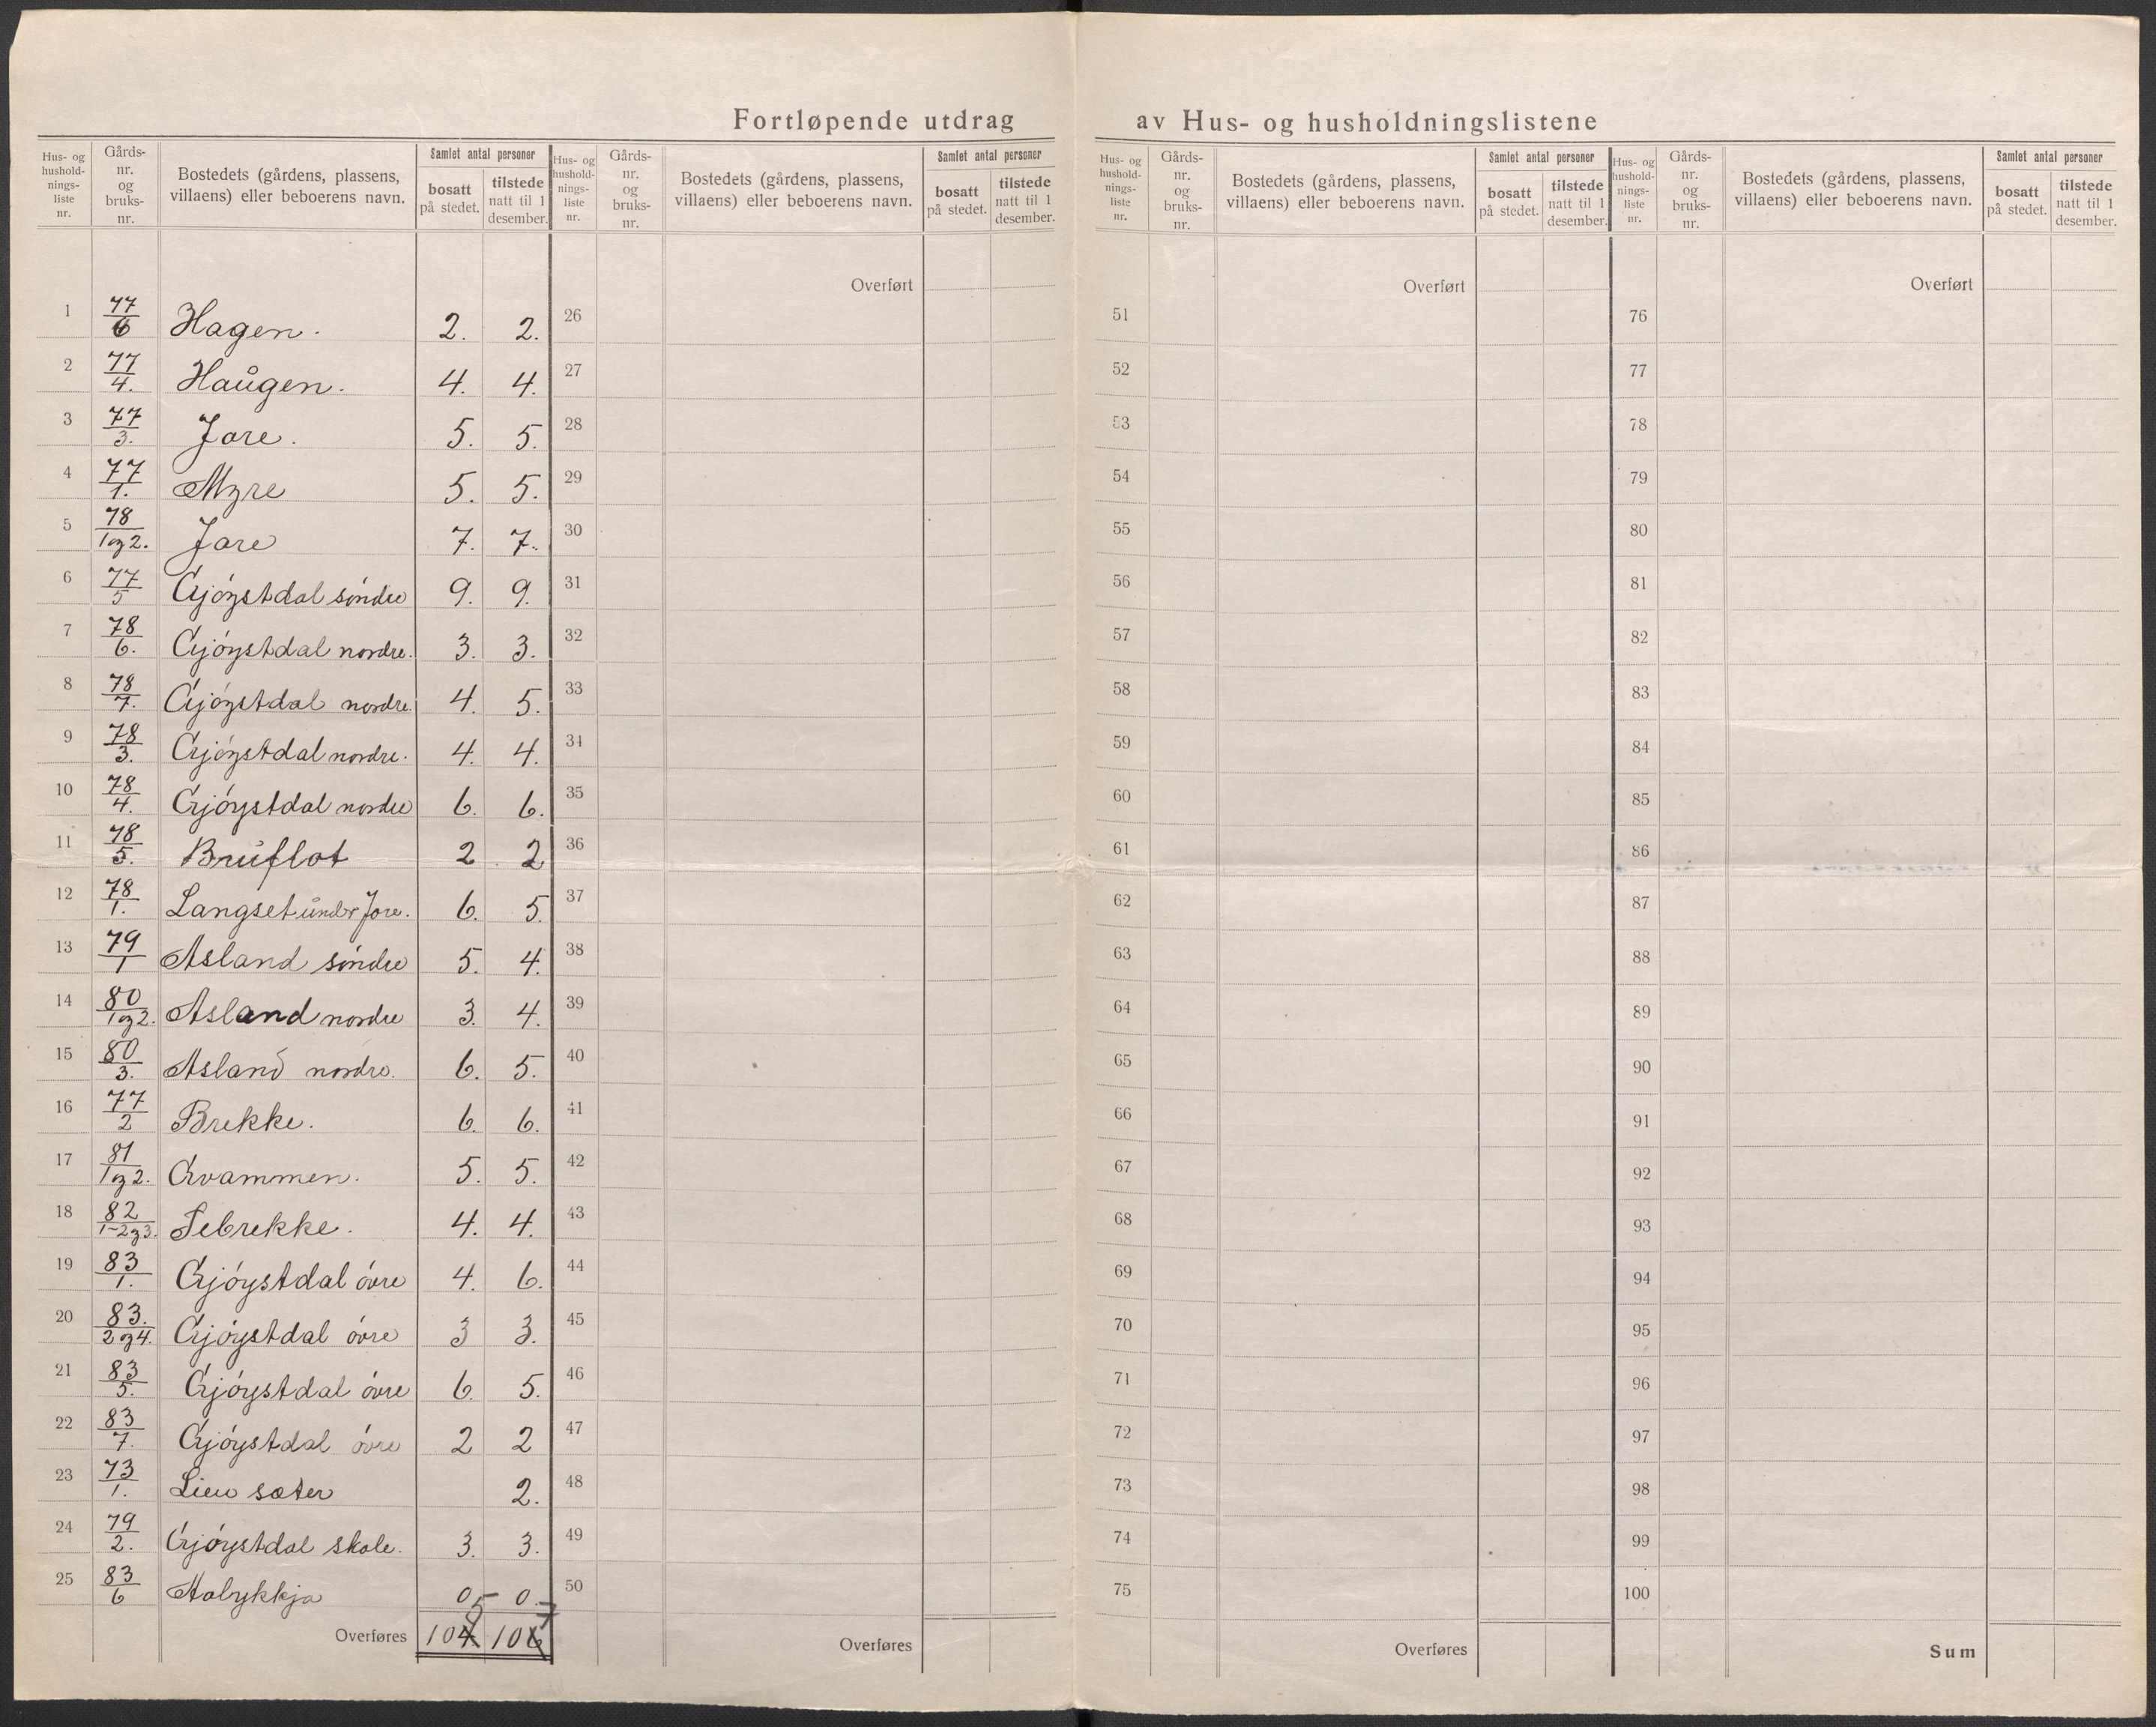 Fortløpende utdrag av Hus- og husholdningslistene
Hus- og hushold-nings-liste nr. | Gårds-nr. og bruks-nr. | Bostedets (gårdens, plassens, villaens) eller beboerens navn. | Samlet antal personer | bosatt på stedet. | tilstede natt til 1 desember.
Hus- og hushold-nings-liste nr. | Gårds-nr. og bruks-nr. | Bostedets (gårdens, plassens, villaens) eller beboerens navn. | Samlet antal personer | bosatt på stedet. | tilstede natt til 1 desember.
Hus- og hushold-nings-liste nr. | Gårds-nr. og bruks-nr. | Bostedets (gårdens, plassens, villaens) eller beboerens navn. | Samlet antal personer | bosatt på stedet. | tilstede natt til 1 desember.
Hus- og hushold-nings-liste nr. | Gårds-nr. og bruks-nr. | Bostedets (gårdens, plassens, villaens) eller beboerens navn. | Samlet antal personer | bosatt på stedet. | tilstede natt til 1 desember.
Overført Overført Overført
1 77/6 Hagen. 2. 2. 26 51 76
2 77/4. Haugen. 4. 4. 27 52 77
3 77/3. Jore. 5. 5. 28 53 78
4 77/1. Myre 5. 5. 29 54 79
5 78/1og2. Jore 7. 7. 30 55 80
6 77/5 Gjöystdal söndre 9. 9. 31 56 81
7 78/6. Gjöystdal nordre. 3. 3. 32 57 82
8 78/7. Gjöystdal nordre. 4. 5. 33 58 83
9 78/3. Gjöystdal nordre. 4. 4. 34 59 84
10 78/4. Gjöystdal nordre 6. 6. 35 60 85
11 78/5. Bruflot 2 2 36 61 86
12 78/1. Langset under Jore. 6. 5. 37 62 87
13 79/1 Asland söndre 5. 4. 38 63 88
14 80/1og2. Asland nordre 3. 4. 39 64 89
15 80/3. Asland nordre. 6. 5. 40 65 90
16 77/2 Brekke. 6. 6. 41 66 91
17 81/1og2. Gvammen. 5. 5. 42 67 92
18 82/1-2og3. Sebrekke. 4. 4. 43 68 93
19 83/1. Gjöystdal övre 4. 6. 44 69 94
20 83./2og4. Gjöystdal övre 3 3. 45 70 95
21 83/5. Gjöystdal övre 6. 5. 46 71 96
22 83/7. Gjöystdal övre 2 2 47 72 97
23 73/1. Lien sæter 2. 48 73 98
24 79/2. Gjöystdal skole. 3. 3. 49 74 99
25 83/6 0 0. 50 75 100
5 7
Overføres 104 106 Overføres Overføres Sum